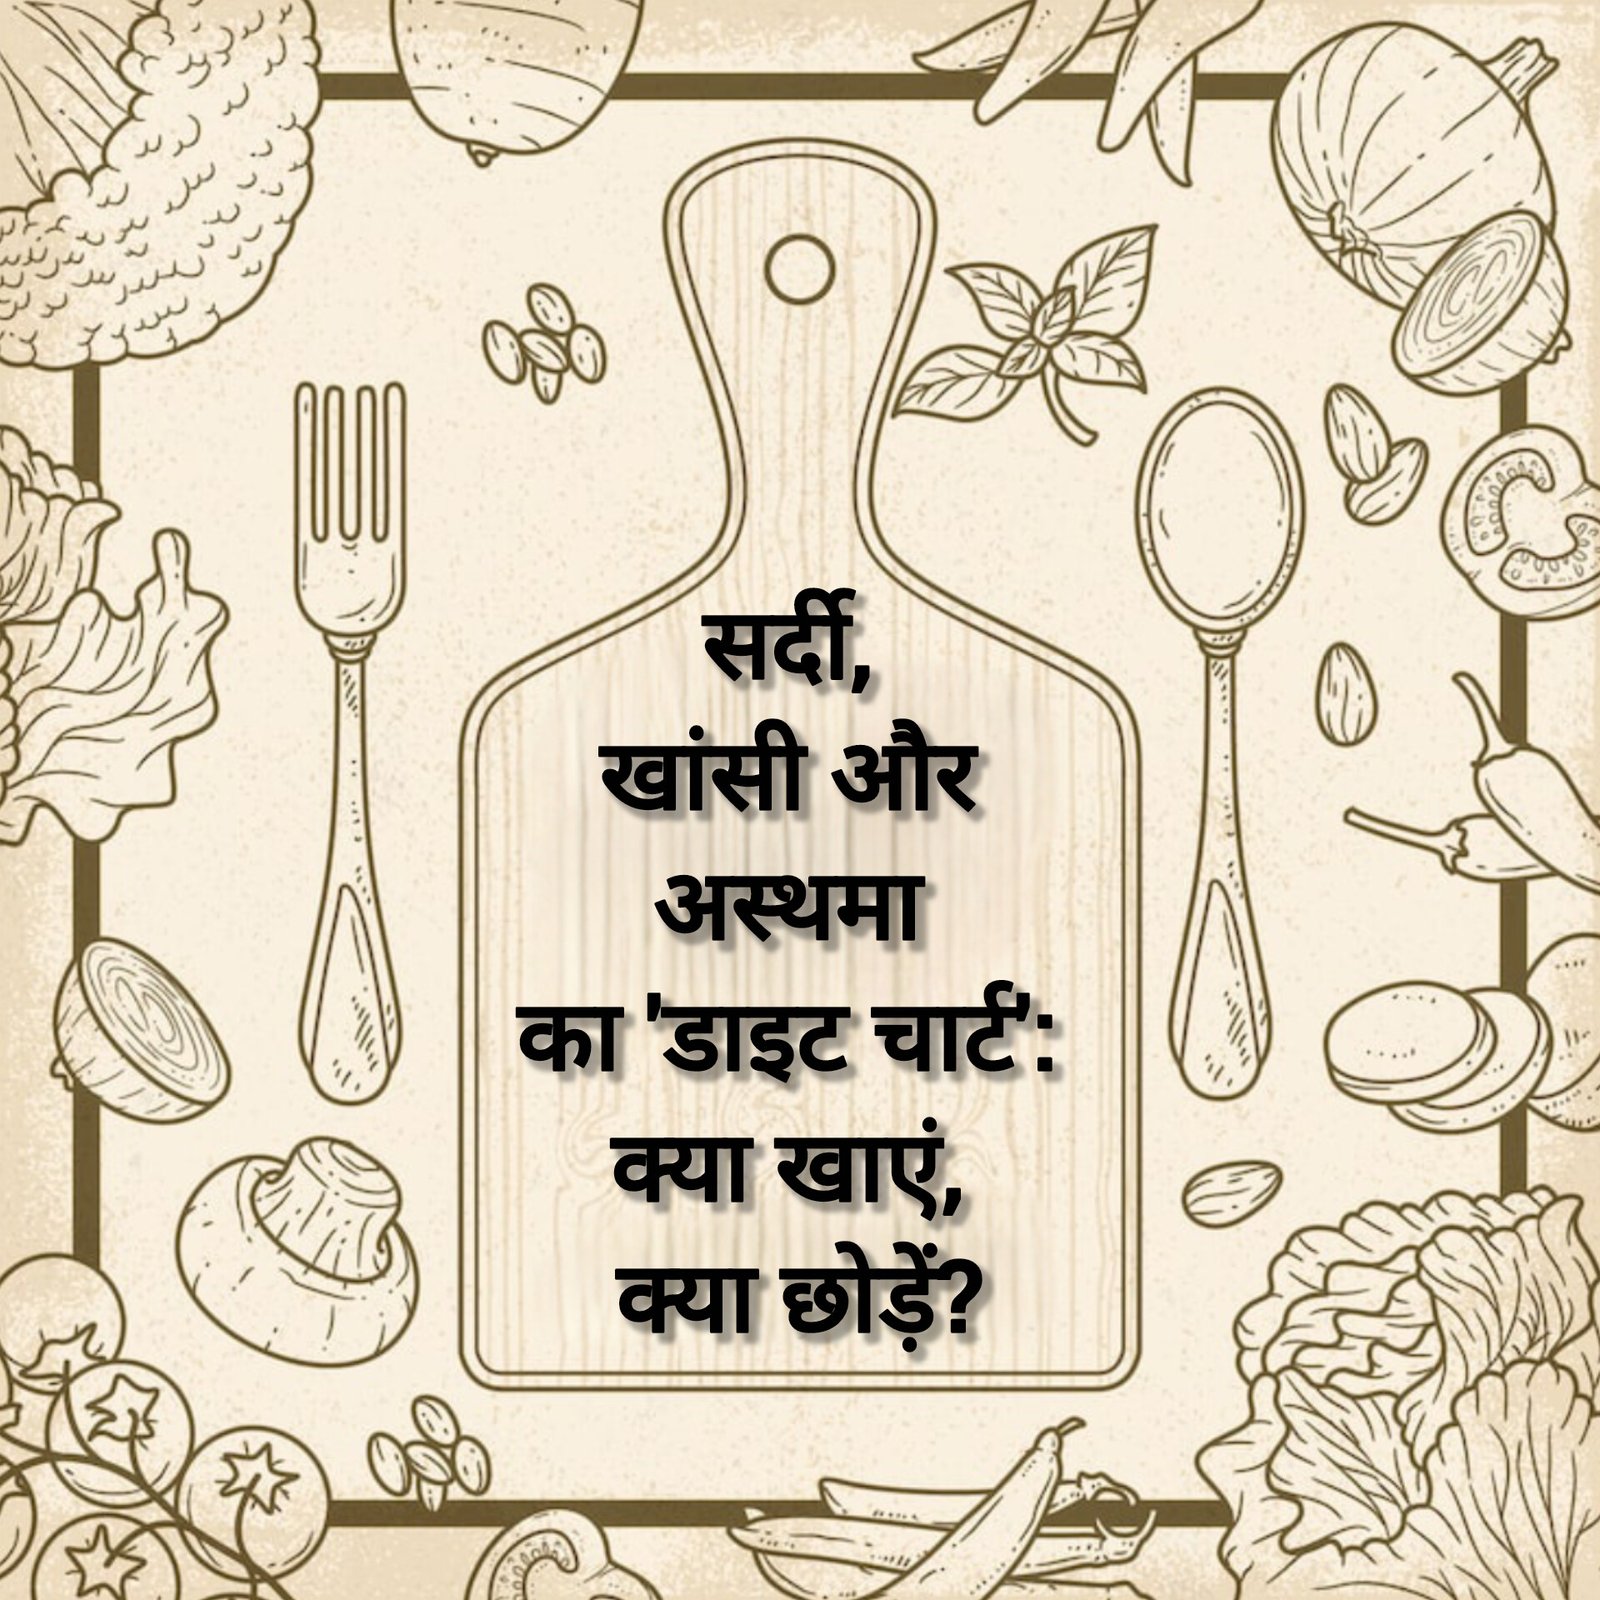 सर्दी,
खांसी और
अस्थमा
का 'डाइट चार्ट':
क्या खाएं,
क्या छोड़ें?